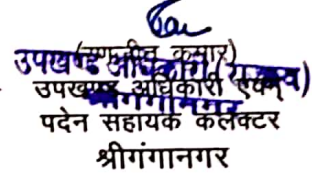 (रणजीत कुमार)
उपखण्ड अधिकारी (राजस्व)
उपखण्ड अधिकारी एवं
श्रीगंगानगर
पदेन सहायक कलेक्टर
श्रीगंगानगर